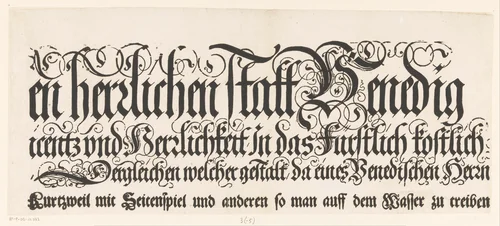 en herrlichen statt Venedig
icentz vnd Herrlichkeit in das Furstlich kostlich
Dergleichen welcher gestalt da eines Venedischen Herrn
Kurtzweil mit Seitenspiel und anderen so man auff dem Wasser zu treiben